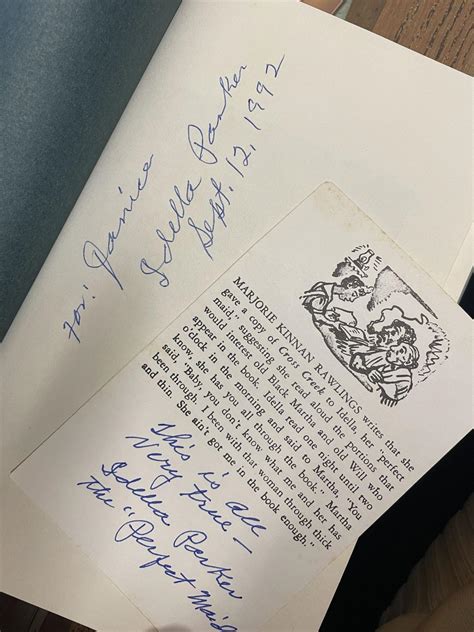 For: Janice
Idella Parker
Sept. 12, 1992
MARJORIE KINNAN RAWLINGS writes that she
gave a copy of Cross Creek to Idella, her "perfect
maid," suggesting she read aloud the portions that
would interest old Black Martha and old Will who
appear in the book. Idella read one night until two
o'clock in the morning and said to Martha, "You
know, she has you all through the book." Martha
said, "Baby, you don't know what me and her has
been through. I been with that woman through thick
and thin. She ain't got me in the book enough."
This is all
Very true—
Idella Parker
the "Perfect Maid